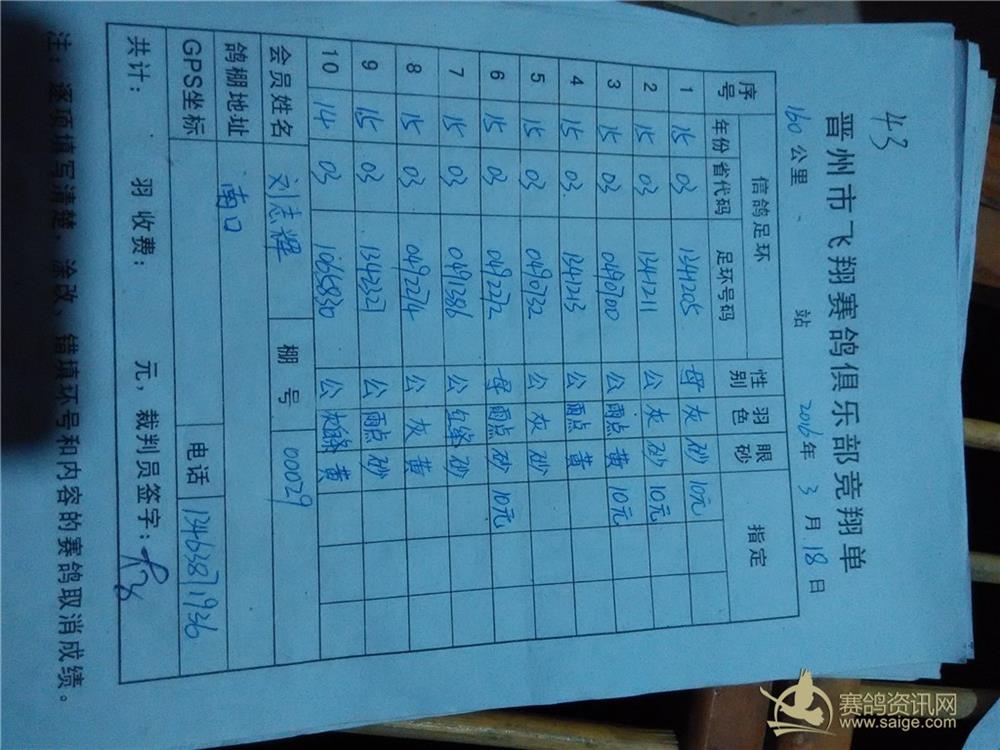 43
晋州市飞翔赛鸽俱乐部竞翔单
160公里 站 2016年3月18日
序号 信鸽足环 性别 羽色 眼砂 指定
年份 省代码 足环号码
1 15 03 1341205 母 灰 砂 10元
2 15 03 1341211 公 灰 砂 10元
3 15 03 0490700 公 雨点 黄 10元
4 15 03 1341213 公 雨点 黄
5 15 03 0490732 公 灰 砂
6 15 03 0492272 母 雨点 砂 10元
7 15 03 0491386 公 红绛 砂
8 15 03 0492274 公 灰 黄
9 15 03 1342327 公 雨点 砂
10 14 03 1065830 公 黄
会员姓名 刘志辉 棚号 00029
鸽棚地址 南口
GPS坐标 电话 13463871936
共计： 羽收费： 元，裁判员签字：
注：逐项填写清楚，涂改、错填环号和内容的赛鸽取消成绩。
赛鸽资讯网
www.saige.com